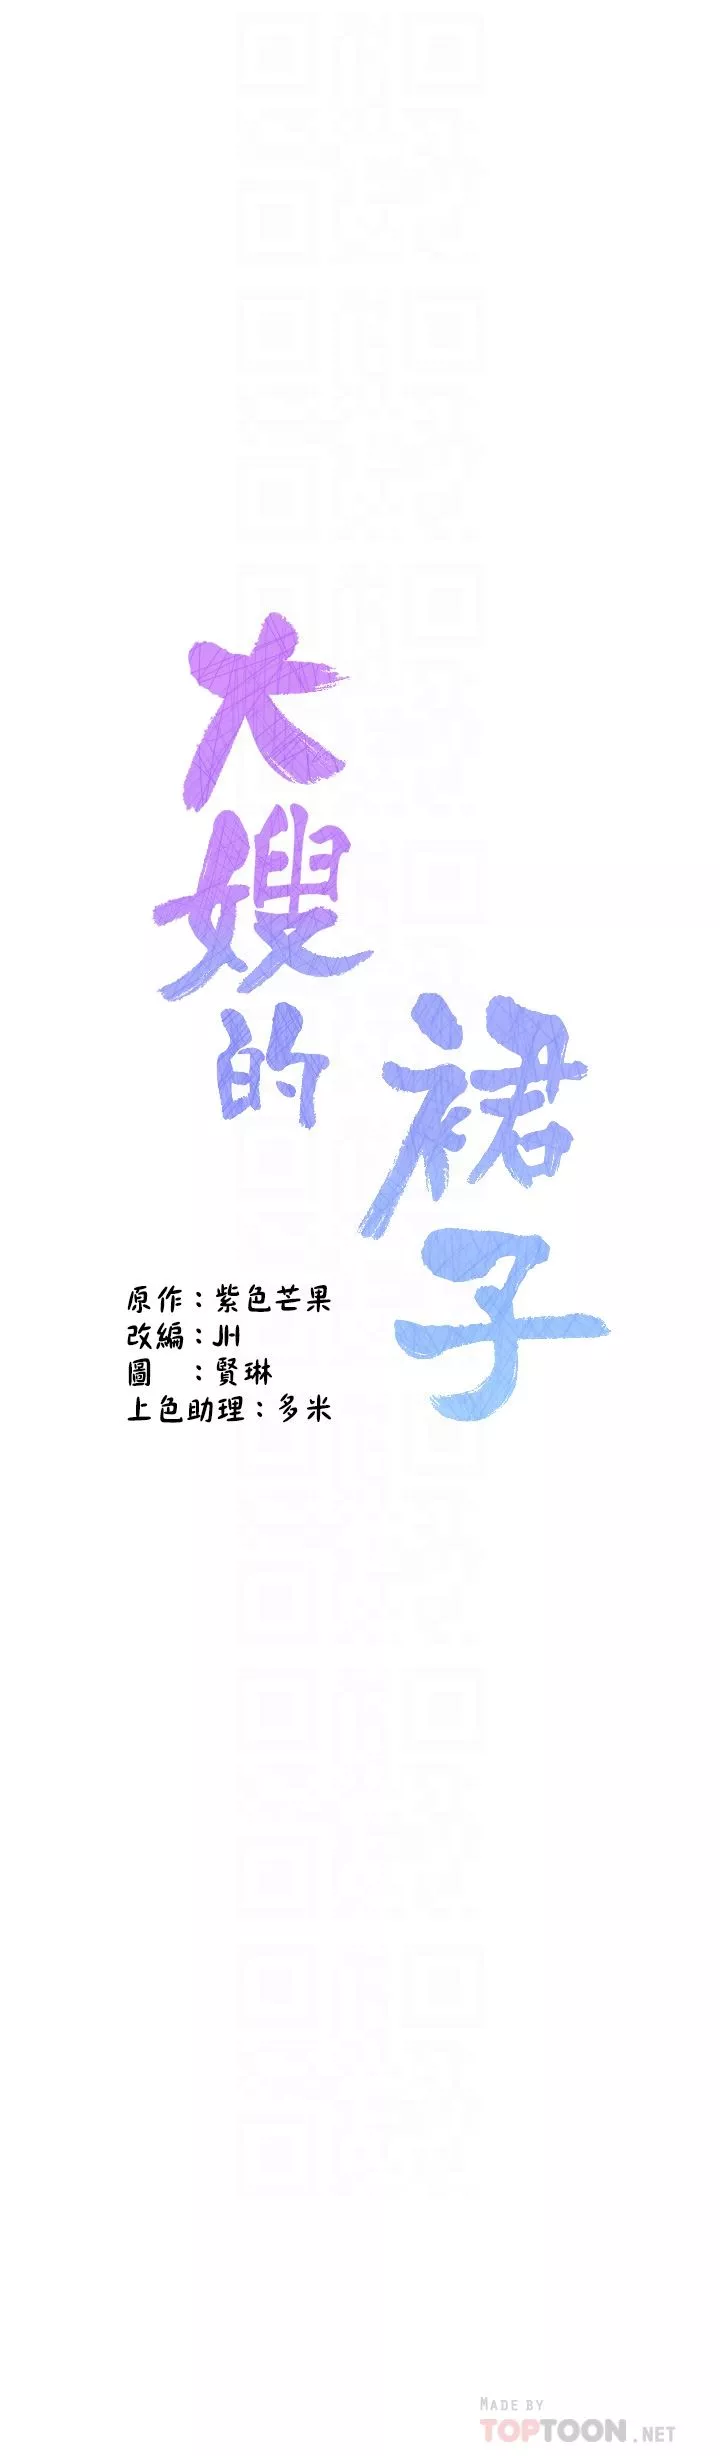 大嫂的
裙子
原作：紫色芒果
改編：JH
圖　：賢琳
上色助理：多米
MADE BY
TOPTOON.NET